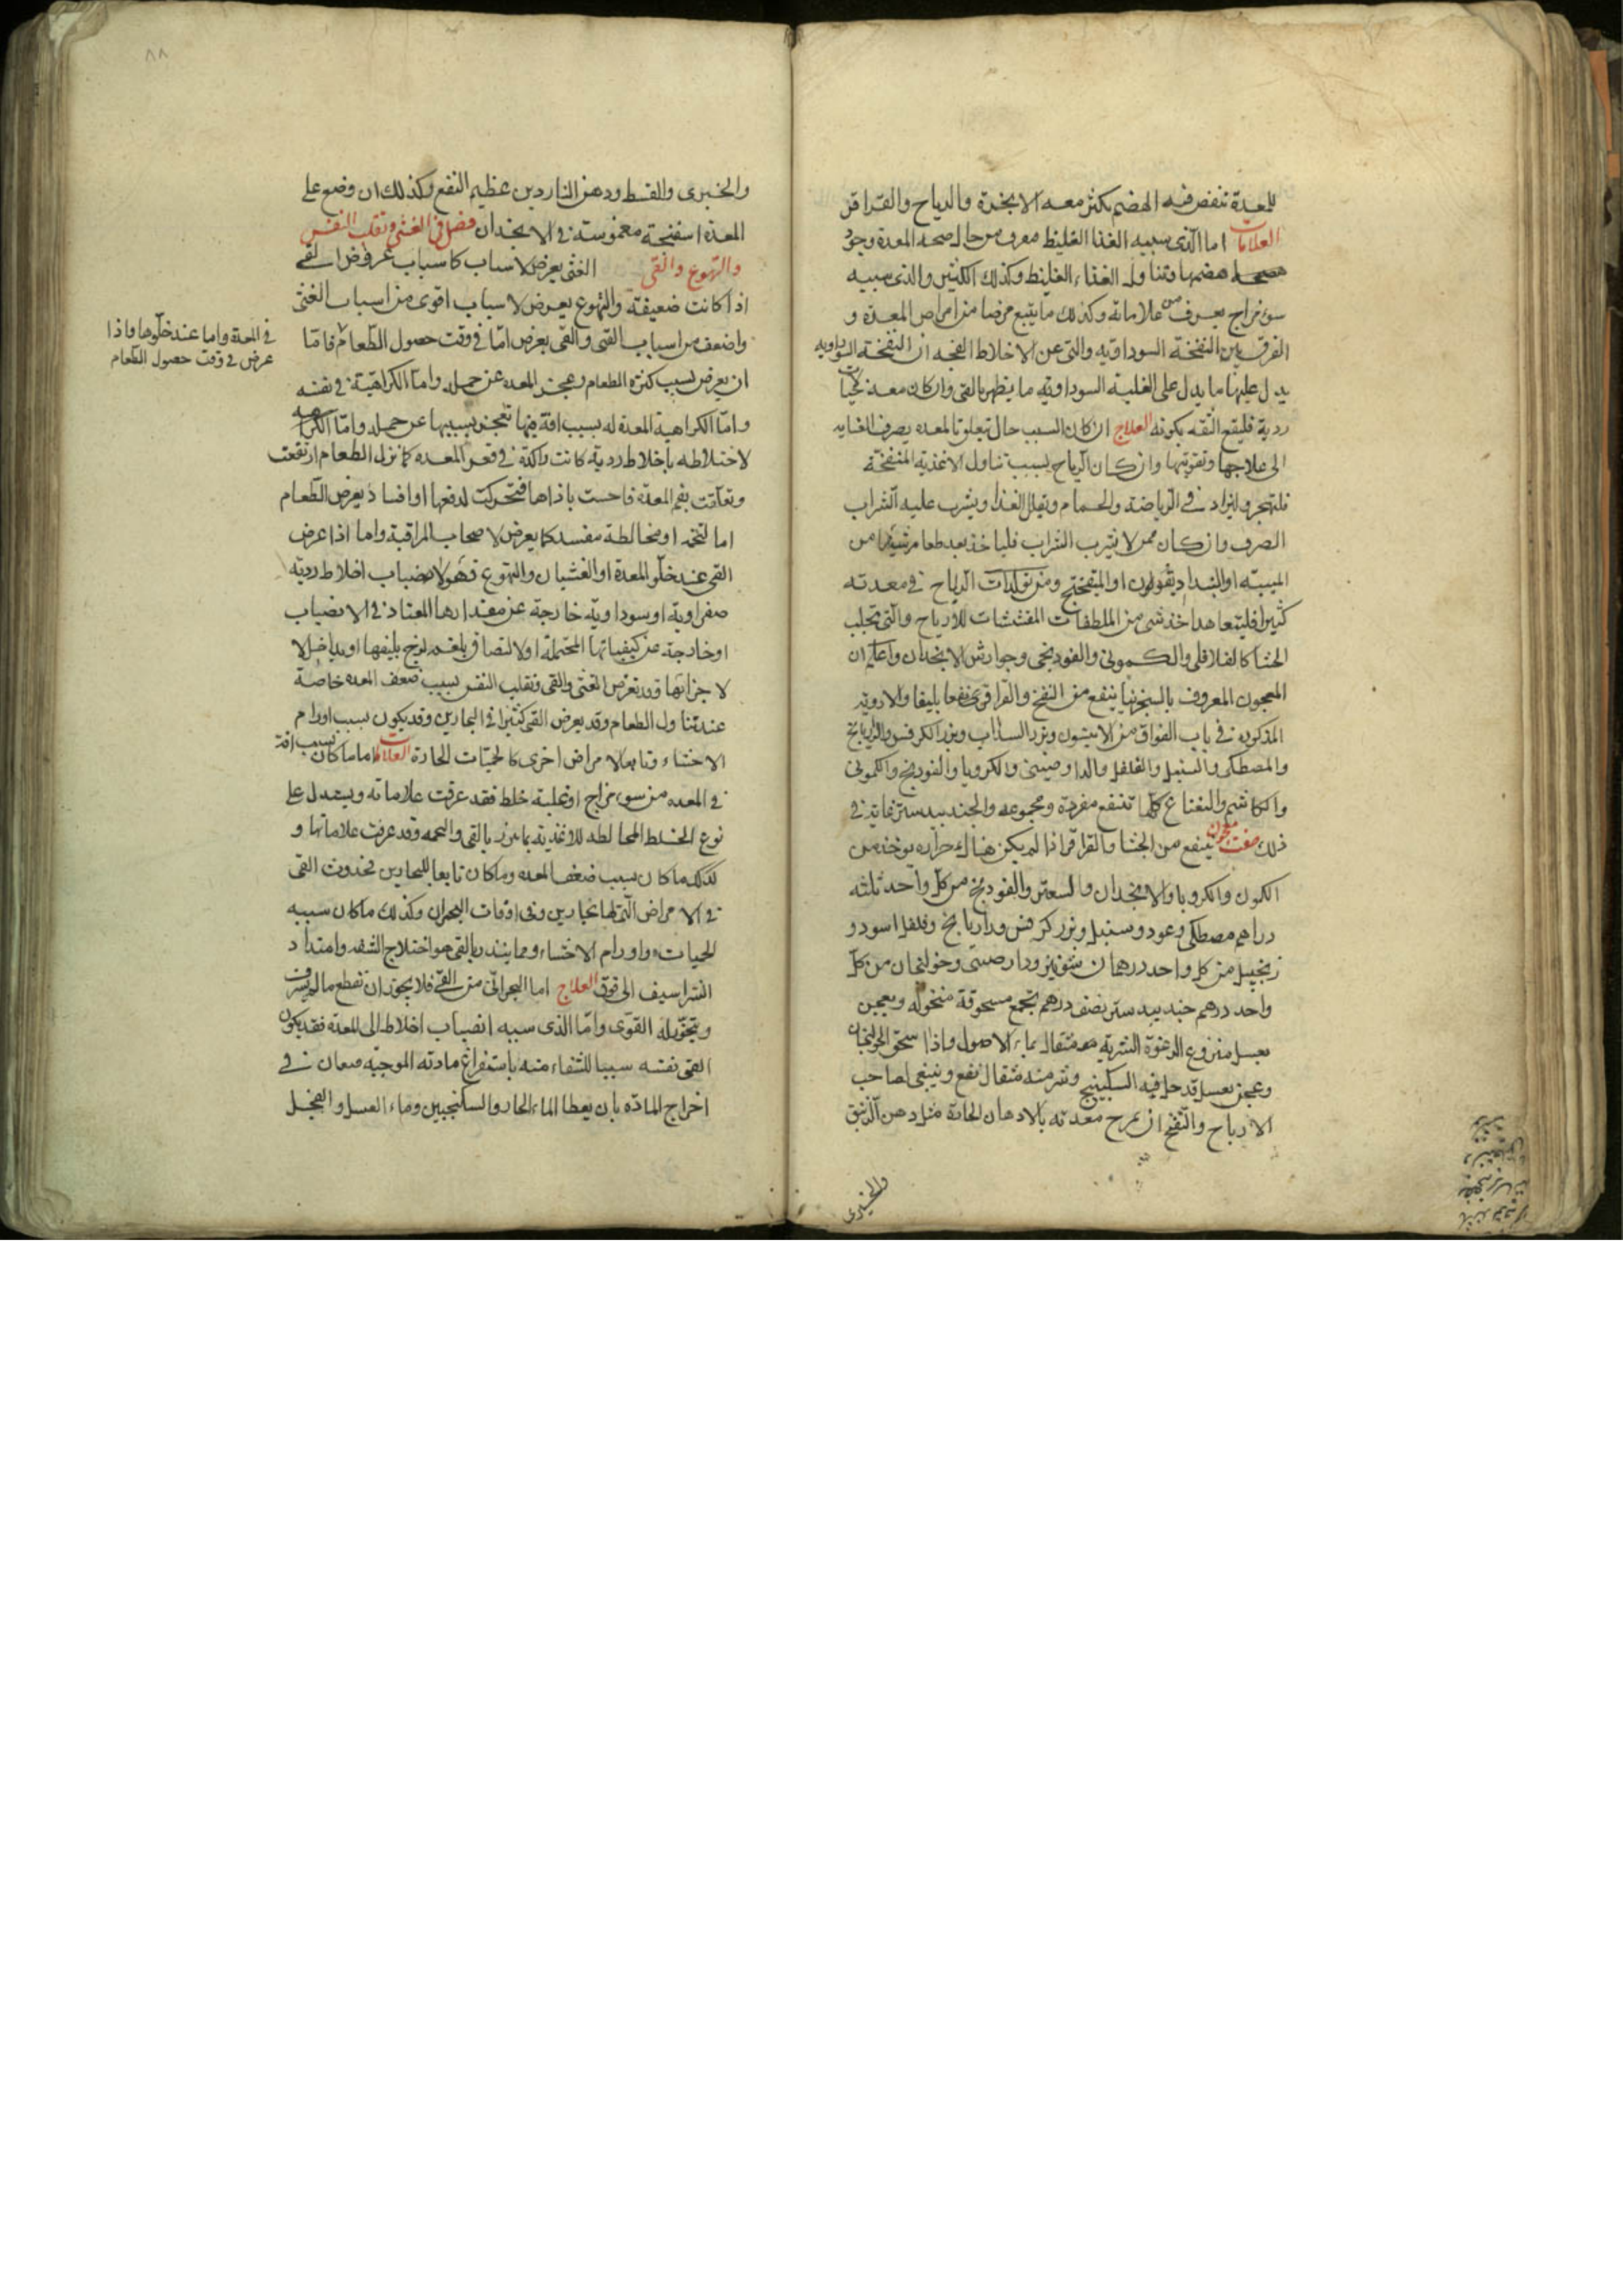 للمعدة تنقص فيه الهضم يكثر معه الابخرة والرياح والقراقر
العلامات اما الذى سببه الغذا الغليظ معرف من حال صحه المعدة وجود
هضمها وتناوله الغذاء الغليظ وكذلك الكثير والذى سببه
سوء مزاج يعرف من علاماته وكذلك ما يتبع مرضا من امراض المعدة و
الفرق بين النفخة السوداويه والتى عن الاخلاط الفجه ان النفخة السوداويه
يدل عليها ما يدل على الغلبة السوداويه ما يظهر بالقى وان كان معه حميات
ردية فليقع الثقه بكونه العلاج ان كان السبب حال تتعلق بالمعده يصرف العنايه
الى علاجها وتقويتها وان كان الرياح بسبب تناول الاغذية المنفخة
فلتهجر وليزاد فى الرياضة والحمام وتقلل الغذا ويشرب عليه الشراب
الصرف وان كان ممن لا يشرب الشراب فلياخذ بعد طعامه شيئا من
الميبه او ومن تولدات الرياح فى معدته
كثيرا فليتعاهد اخذ شى من الملطفات المفششات للارياح والتى تجلب
الجشا كالفلافلى والكمونى والفودنجى وجوارش الانجدان واعلم ان
المعجون المعروف بالسجزنيا ينفع من النفخ والقراقر نفعا بليغا والادويه
المذكوره فى باب الفواق من الانيسون وبزر السذاب وبزر الكرفس والرازيانج
والمصطكى والسنبل والفلفل والدارصينى والكرويا والفودنج والكمون
والكاشم والنعناع كلها تنفع مفردة ومجموعه والجندبيدستر غاية فى
ذلك صفت معجون ينفع من الجشا والقراقر اذا لم يكن هناك حراره يوخذ من
الكمون والكرويا والانجدان والسعتر والفودنج من كل واحد ثلثه
دراهم مصطكى وعود وسنبل وبزر كرفس ورازيانج وفلفل اسود و
زنجبيل من كل واحد درهمان شونيز ودارصينى وخولنجان من كل
واحد درهم جندبيدستر نصف درهم تجمع مسحوقة منخوله ويعجن
بعسل منزوع الرغوة الشربة منه مثقال بماء الاصول واذا سحق الخولنجان
وعجن بعسل قد حل فيه السكبينج وشرب منه مثقال نفع وينبغى لصاحب
الارياح والنفخ ان يمرخ معدته بالادهان الحارة مثل دهن الزنبق
والخيرى
٨٨
والخيرى والقسط ودهن الناردين عظيم النفع وكذلك ان وضع على
المعدة اسفنجة مغموسة فى الانجدان فصل فى الغثى وتقلب النفس
والتهوع والقى الغثى يعرض لاسباب كاسباب عروض القى
اذا كانت ضعيفة والتهوع يعرض لاسباب اقوى من اسباب الغثى
واضعف من اسباب القى والقى يعرض اما فى وقت حصول الطعام فاما
فى المعدة واما عند خلوها واذا
عرض فى وقت حصول الطعام
ان يعرض بسبب كثرة الطعام وعجز المعده عن حمله واما الكراهية فى نفسه
واما الكراهية المعدة له بسبب افة فيها تعجز بسببها عن حمله واما الكراهيه
لاختلاطه باخلاط ردية كانت راكدة فى قعر المعده كما نزل الطعام ارتفعت
وتعلقت بفم المعدة فاحست باذاها فتحركت لدفعها او افساد يعرض الطعام
اما لتخمه او مخالطة مفسد كما يعرض لاصحاب المراقية واما اذا عرض
القى عند خلو المعدة او الغثيان والتهوع فهو لانصباب اخلاط رديه
صفراوية او سوداوية خارجة عن مقدارها المعتاد فى الانصباب
او خارجة عن كيفياتها المحتملة او لالتصاق بلغم لزج بليفها او يداخل
لاجزائها وقد تعرض الغثى والقى وتقلب النفس بسبب ضعف المعده خاصة
عند تناول الطعام وقد يعرض القى كثيرا فى البحارين وقد يكون بسبب اورام
الاحشاء وتابعا لامراض اخرى كالحميات الحادة العلامات اما ما كان بسبب افة
فى المعده من سوء مزاج او غلبة خلط فقد عرفت علاماته ويستدل على
نوع الخلط المخالطه للاغذيه بما يبرز بالقى والتخمه وقد عرفت علاماتها و
كذلك ما كان بسبب ضعف المعده وما كان تابعا للبحارين فحدوث القى
فى الامراض التى لها بحارين وفى اوقات البحران وكذلك ما كان سببه
الحميات واورام الاحشاء ومما ينذر بالقى هو اختلاج الشفه وامتداد
الشراسيف الى فوق العلاج اما البحرانى من القى فلا يجوز ان تقطع ما لم يسرف
ويتخور له القوى واما الذى سببه انصباب اخلاط الى المعدة فقد يكون
القى نفسه سببا للشفاء منه باستفراغ مادته الموجبه فيعان فى
اخراج المادة بان يعطا الماء الحار والسكنجبين وماء العسل والفجل